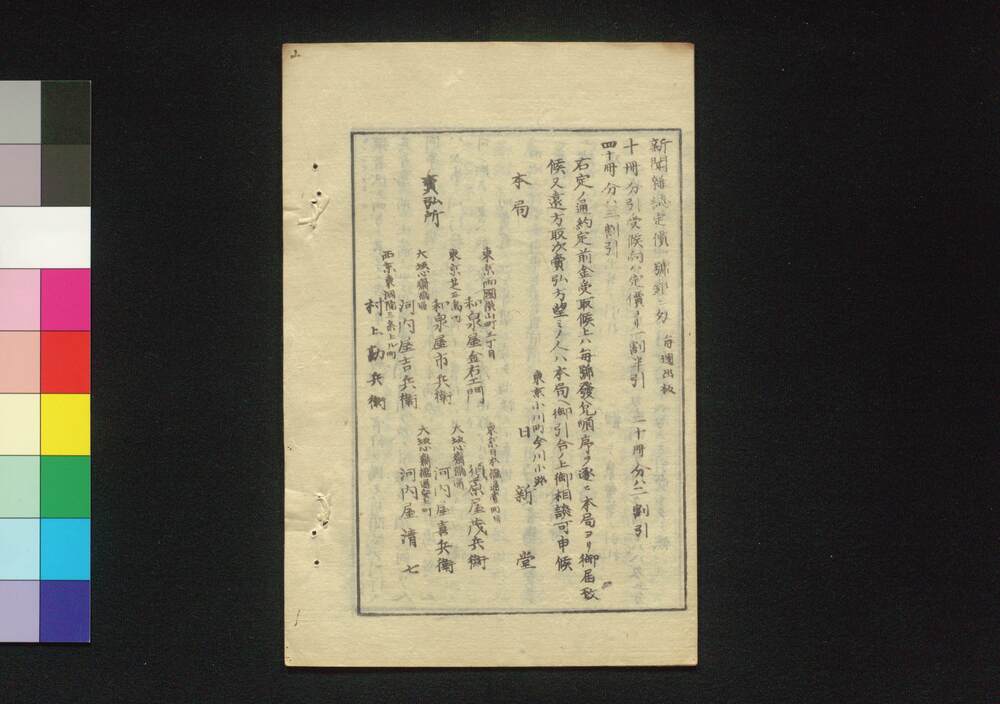 新聞雜誌定價 一號銀二匁 毎週出板
十冊分引受候向ハ定價ヨリ一割半引 二十冊分ハ二割引
四十冊分ハ三割引
右定ノ通約定前金受取候上ハ毎號發兌順序ヲ逐ヒ本局ヨリ御届致
候又遠方取次賣弘方望ミノ人ハ本局ヘ御引合ノ上御相談可申候
東京小川町今川小路
本局 日新堂
賣弘所
東京両國横山町三丁目
和泉屋金右エ門
東京日本橋通壹町目
須原屋茂兵衛
東京芝三島町
和泉屋市兵衛
大坂心齋橋通
河内屋喜兵衛
大坂心齋橋通
河内屋吉兵衛
大坂心齋橋通安土町
河内屋清七
西京東洞院三条上ル町
村上勘兵衛